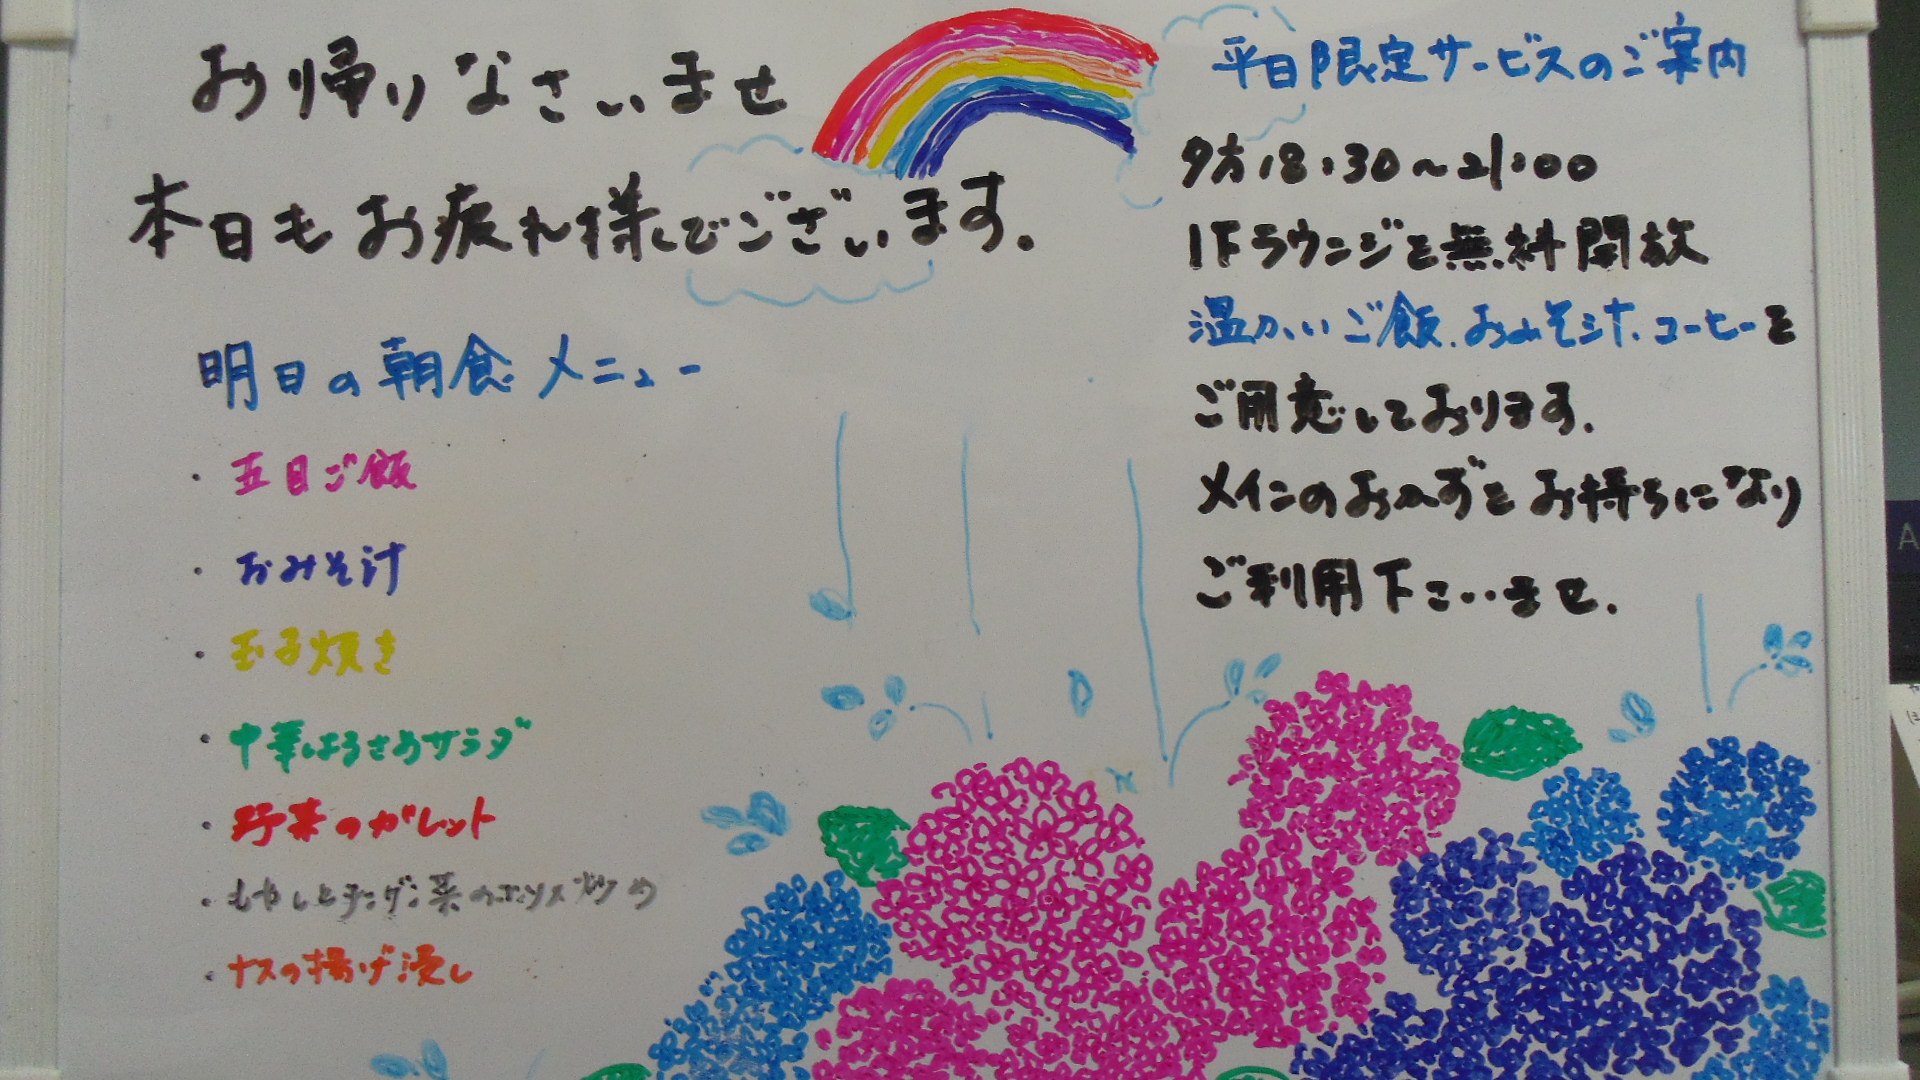 お帰りなさいませ
本日もお疲れ様でございます。
明日の朝食メニュー
・五目ご飯
・おみそ汁
・玉子焼き
・中華はるさめサラダ
・野菜のガレット
・もやしとチンゲン菜のポン酢炒め
・ナスの揚げ浸し
平日限定サービスのご案内
夕方18:30～21:00
1Fラウンジを無料開放
温かいご飯、おみそ汁、コーヒーを
ご用意しております。
メインのおかずをお持ちになり
ご利用下さいませ。